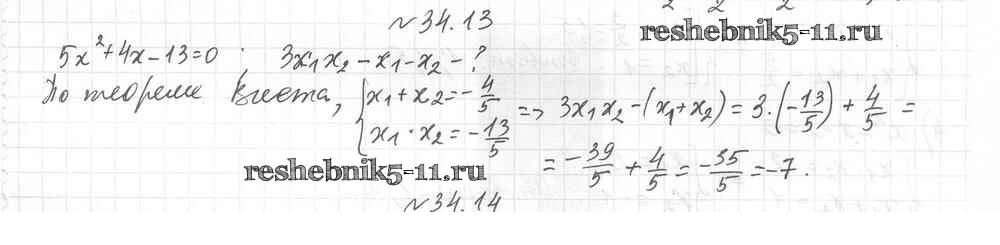 №34.13
reshebnik5-11.ru
5x²+4x-13=0 ; 3x₁x₂-x₁-x₂-?
По теореме Виета, { x₁+x₂=-4/5 => 3x₁x₂-(x₁+x₂)=3·(-13/5)+4/5=
x₁·x₂=-13/5
=-39/5+4/5=-35/5=-7.
reshebnik5-11.ru
№34.14